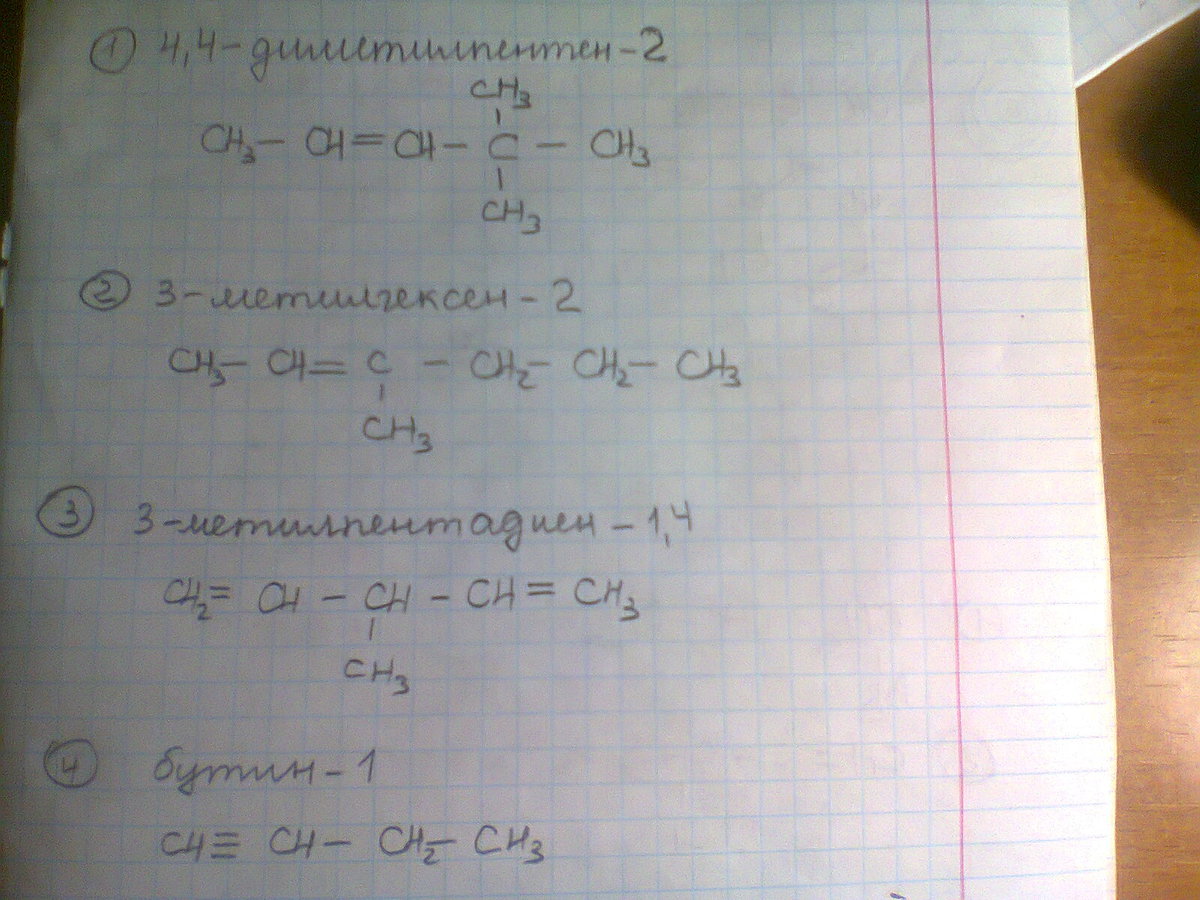 ① 4,4-диметилпентен-2
CH₃
CH₃ - CH = CH - C - CH₃
CH₃
② 3-метилгексен-2
CH₃ - CH = C - CH₂ - CH₂ - CH₃
CH₃
③ 3-метилпентадиен-1,4
CH₂ = CH - CH - CH = CH₃
CH₃
④ бутин-1
CH ≡ CH - CH₂ - CH₃